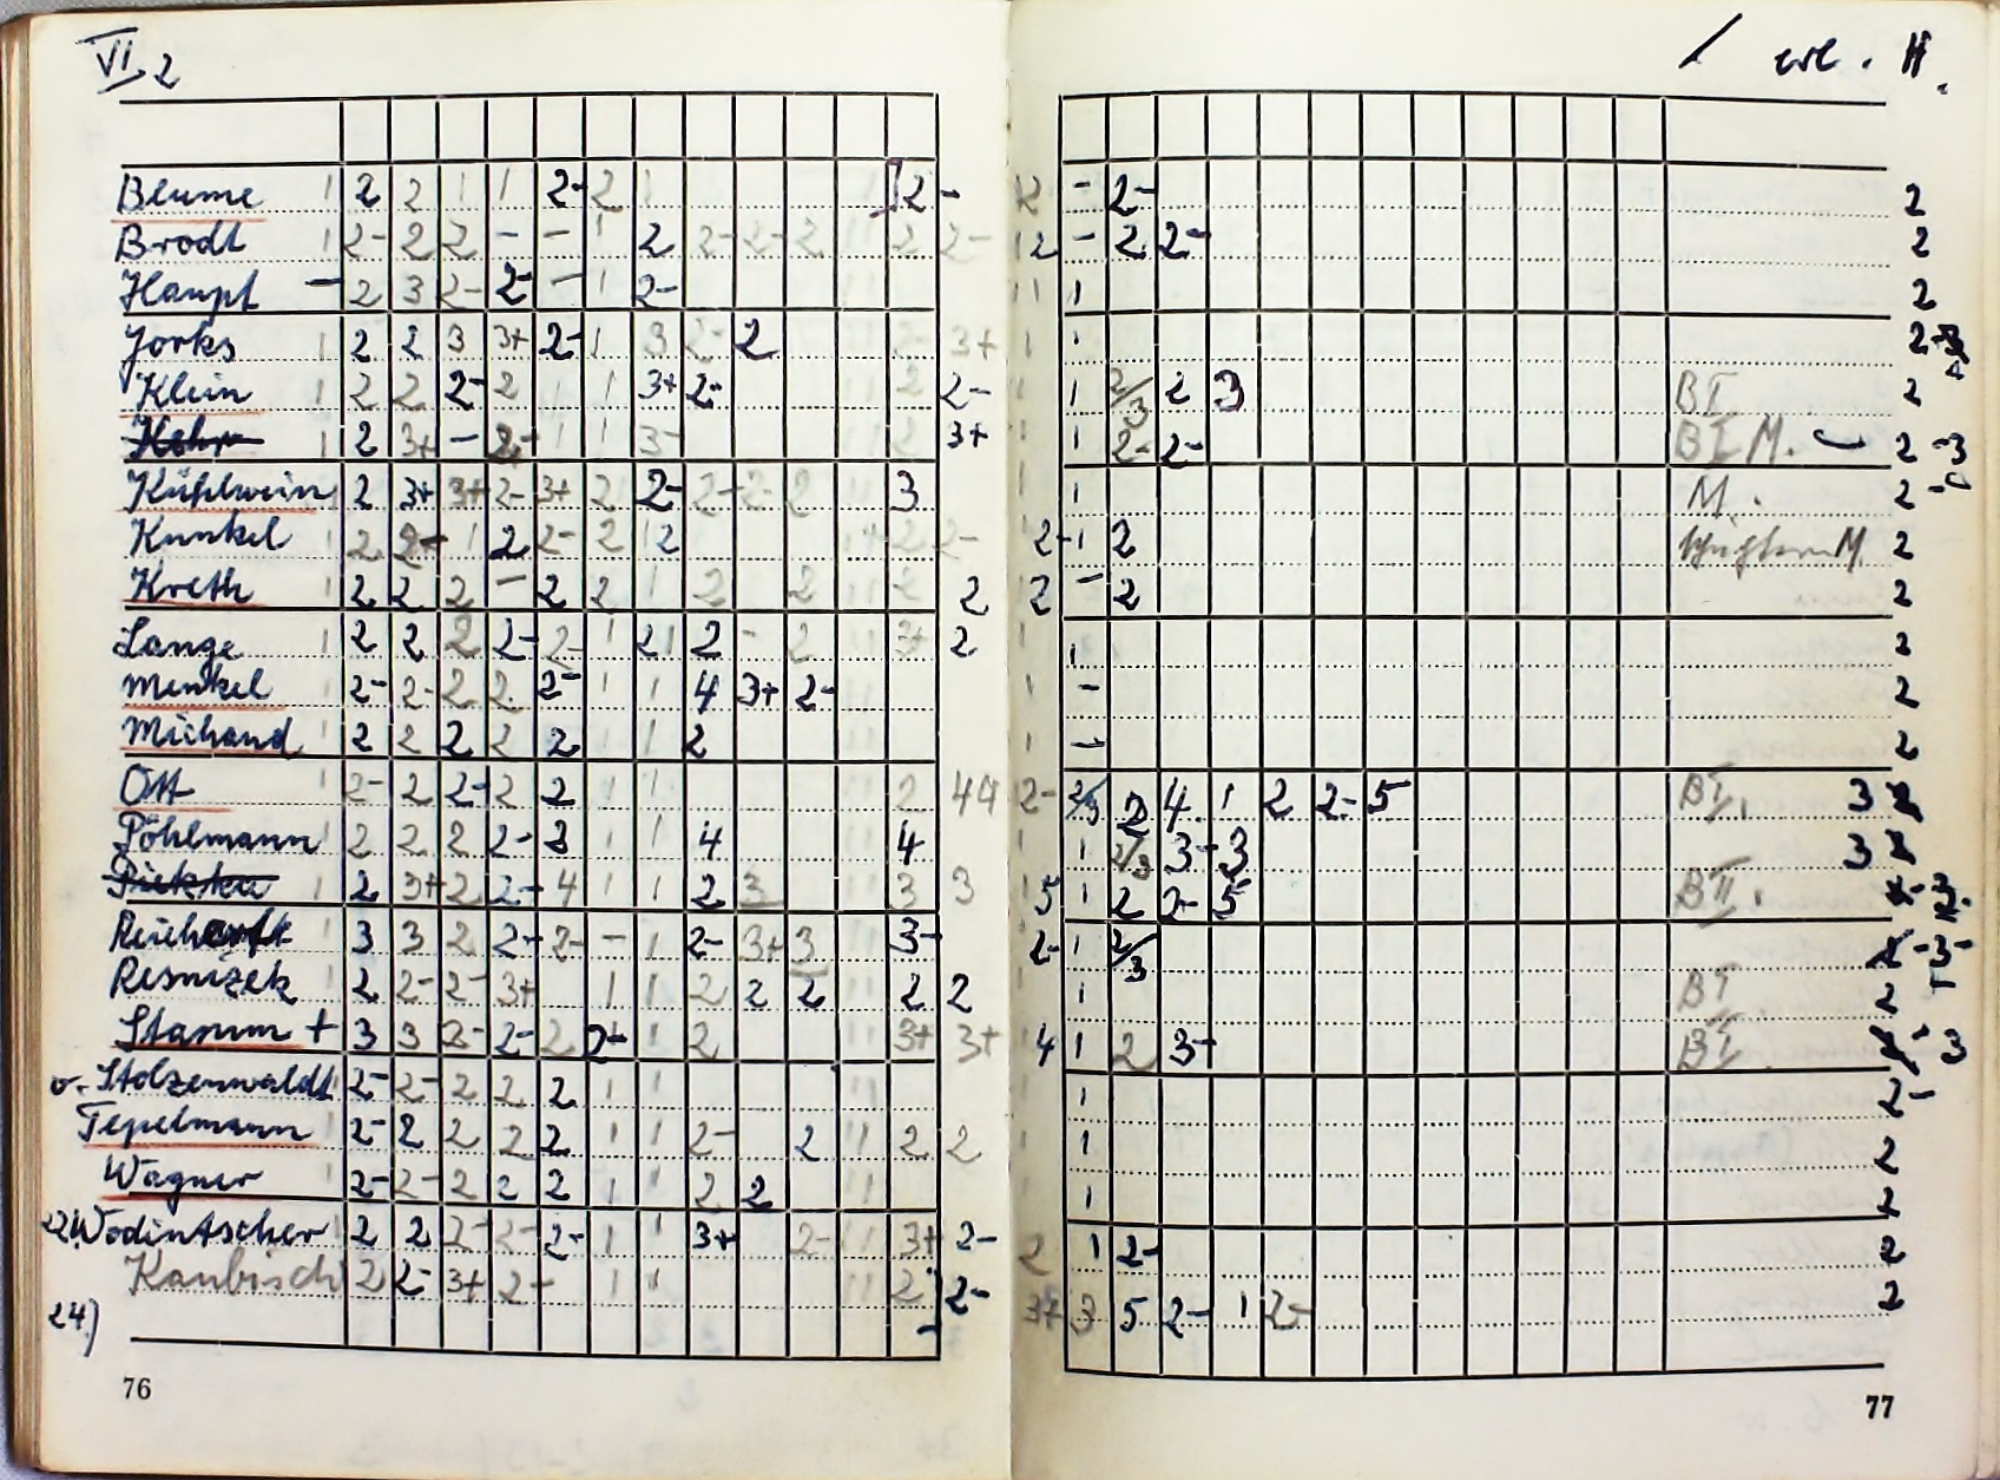 VI. 2
/ erl. H.
Blume 1 2 2 1 1 2- 2 1 2- 2 - 2- 2
Brodt 1 2- 2 2 - - 1 2 2- 2- 2 11 2 2- 12 - 2 2- 2
Haupt - 2 3 2- 2- - 1 2- 11 11 1 2
Jorks 1 2 2 3 3+ 2- 1 3 2- 2 2- 3+ 1 1 2-3
Klein 1 2 2 2- 2 1 1 3+ 2- 11 2 2- 1 1 2/3 2 3 BI 2
Kehr 1 2 3+ - 2- 1 1 3- 11 2 3+ 1 1 2- 2- BI M. 2-3
Kühlwein 1 2 3+ 3+ 2- 3+ 2 2- 2- 2- 2 11 3 1 1 M. 2-
Kunkel 1 2 2- 1 2 2- 2 12 2 2- 2- 1 2 schüchtern M. 2
Kreth 1 2 2 2 - 2 2 1 2 2 11 2 2 2 - 2 2
Lange 1 2 2 2 2- 2- 1 21 2 - 2 11 3+ 2 1 1 2
Menkel 1 2- 2- 2 2 2- 1 1 4 3+ 2- 11 1 - 2
Michaud 1 2 2 2 2 2 1 1 2 11 1 - 2
Ott 1 2- 2 2- 2 2 1 1 11 2 44 2- 2/3 2 4 1 2 2- 5 BI. 3
Pöhlmann 2 2 2 2- 3 1 1 4 4 1 1 2/3 3- 3 3
1 2 3+ 2 2- 4 1 1 2 3 3 3 1 5 1 2 2- 5 BII.
1 3 3 2 2- 2- - 1 2- 3+ 3 3- 2- 1 2/3 3-
Resnizek 1 2 2- 2- 3+ 1 1 2 2 2 11 2 2 1 BI 2
Stamm + 3 3 2- 2- 2 2+ 1 2 11 3+ 3+ 4 1 2 3+ BI 3
v. Stolzenwaldt 1 2- 2- 2 2 2 1 1 11 1 1 2-
Tepelmann 1 2- 2 2 2 2 1 1 2- 2 11 2 2 1 1 2
Wagner 1 2- 2- 2 2 2 1 1 2 2 11 1 2
Wodintscher 1 2 2 2- 2- 2- 1 1 3+ 2- 11 3+ 2- 2 1 2- 2
Kaubisch 2 2- 3+ 2- 1 1 11 2 2- 3+ 3 5 2- 1 2- 2
24.) -
76
77